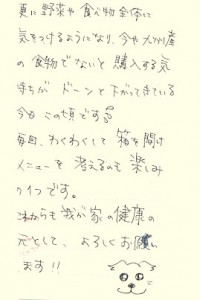 更に野菜や食べ物全体に
気をつけるようになり、今や九州産
の食物でないと購入する気
持ちがドーンと下がってきている
今日この頃です
毎回、わくわくして箱を開け
メニューを考えるのも楽しみ
の1つです。
これからも我が家の健康の
元として、よろしくお願い
ます!!